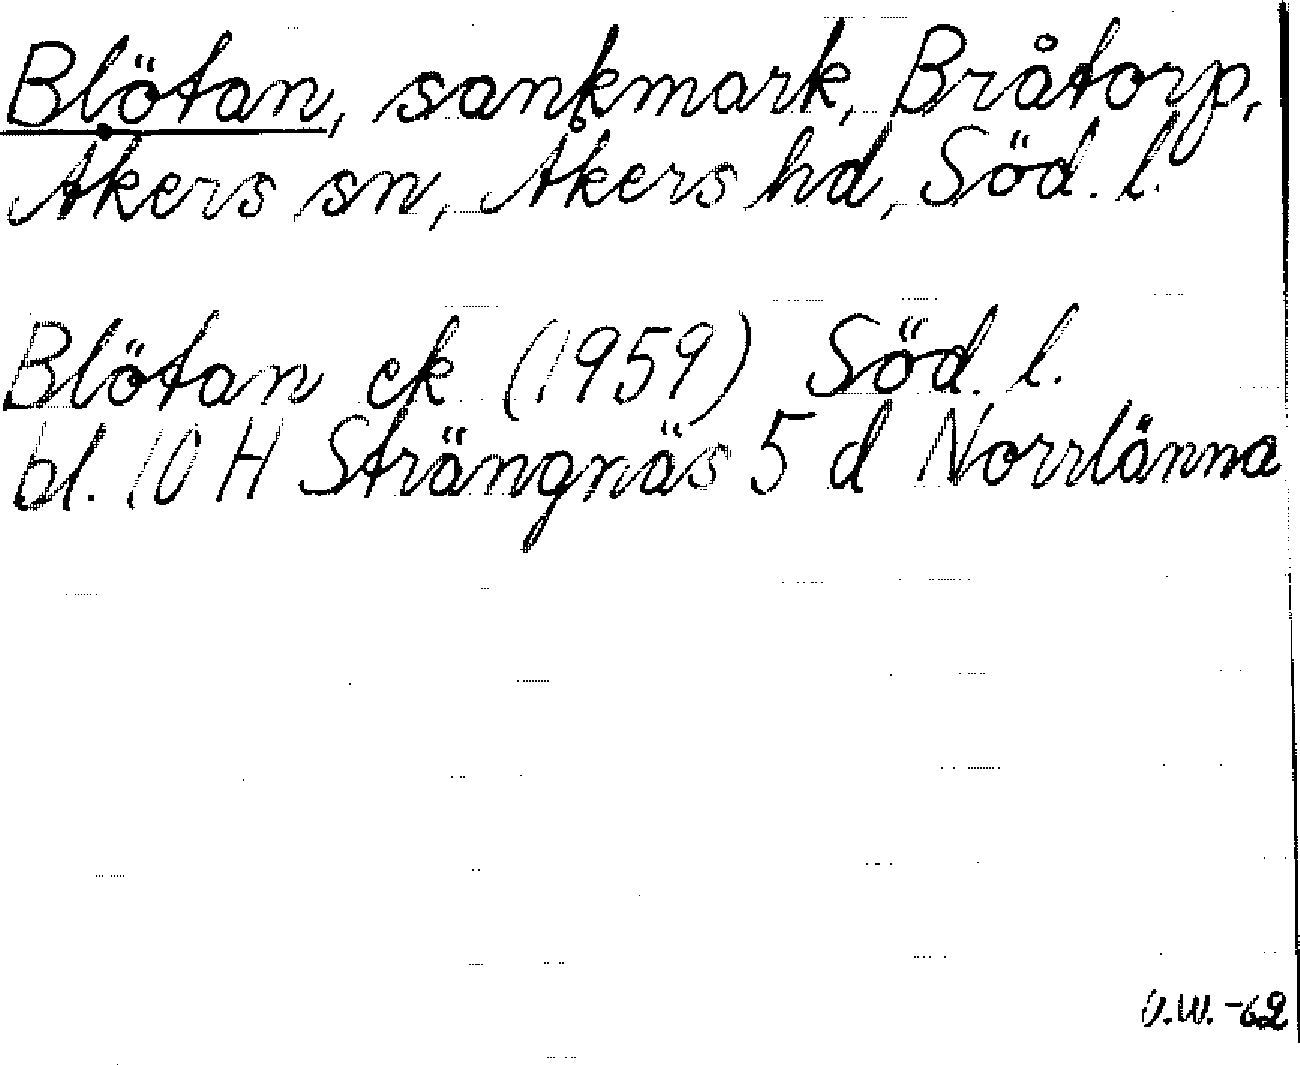 Blötan, sankmark, Bråtorp,
Åkers sn, Åkers hd, Söd. l.
Blötan ek (1959) Söd. l.
bl. 10 H Strängnäs 5 d Norrlänna
U.W. -62